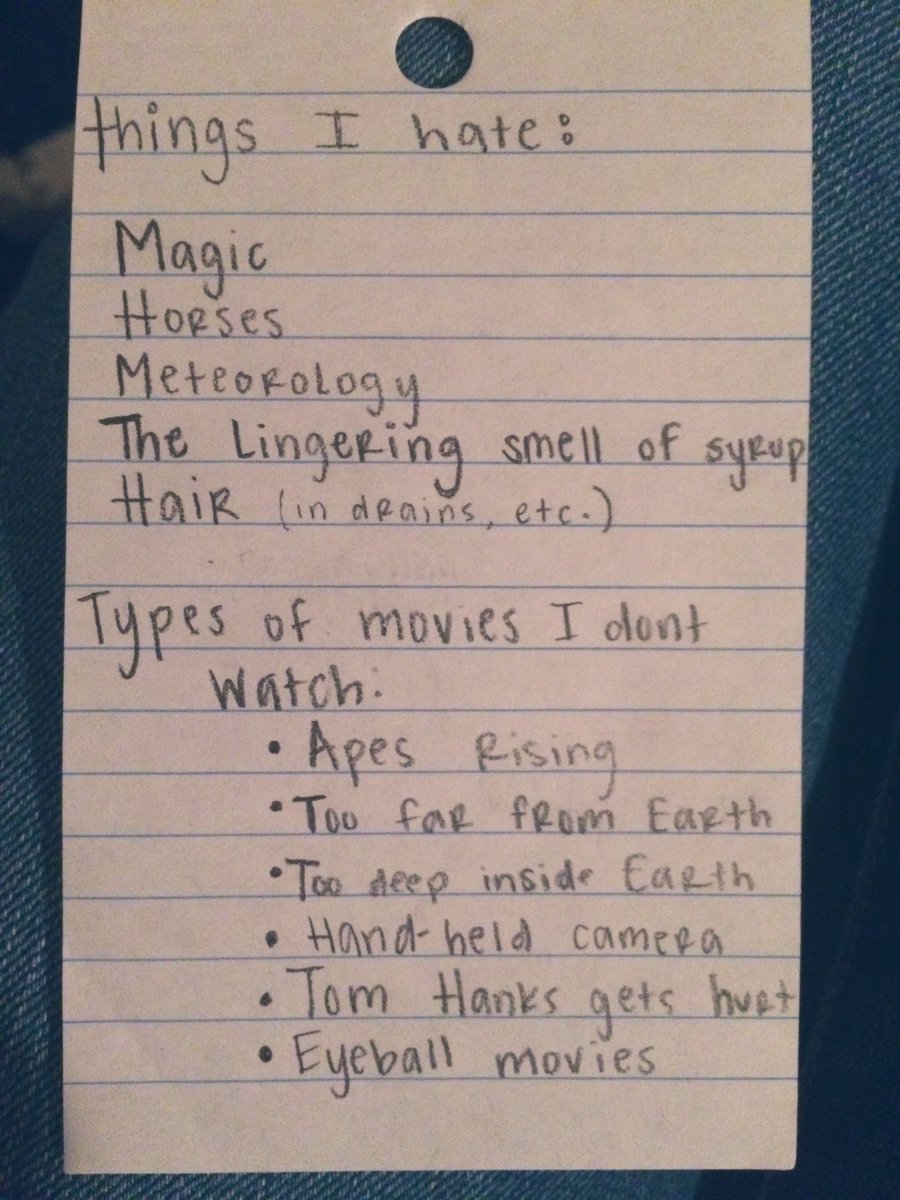 things I hate:
Magic
Horses
Meteorology
The Lingering smell of syrup
Hair (in drains, etc.)
Types of movies I dont
Watch:
• Apes Rising
• Too far from Earth
• Too deep inside Earth
• Hand-held camera
• Tom Hanks gets hurt
• Eyeball movies